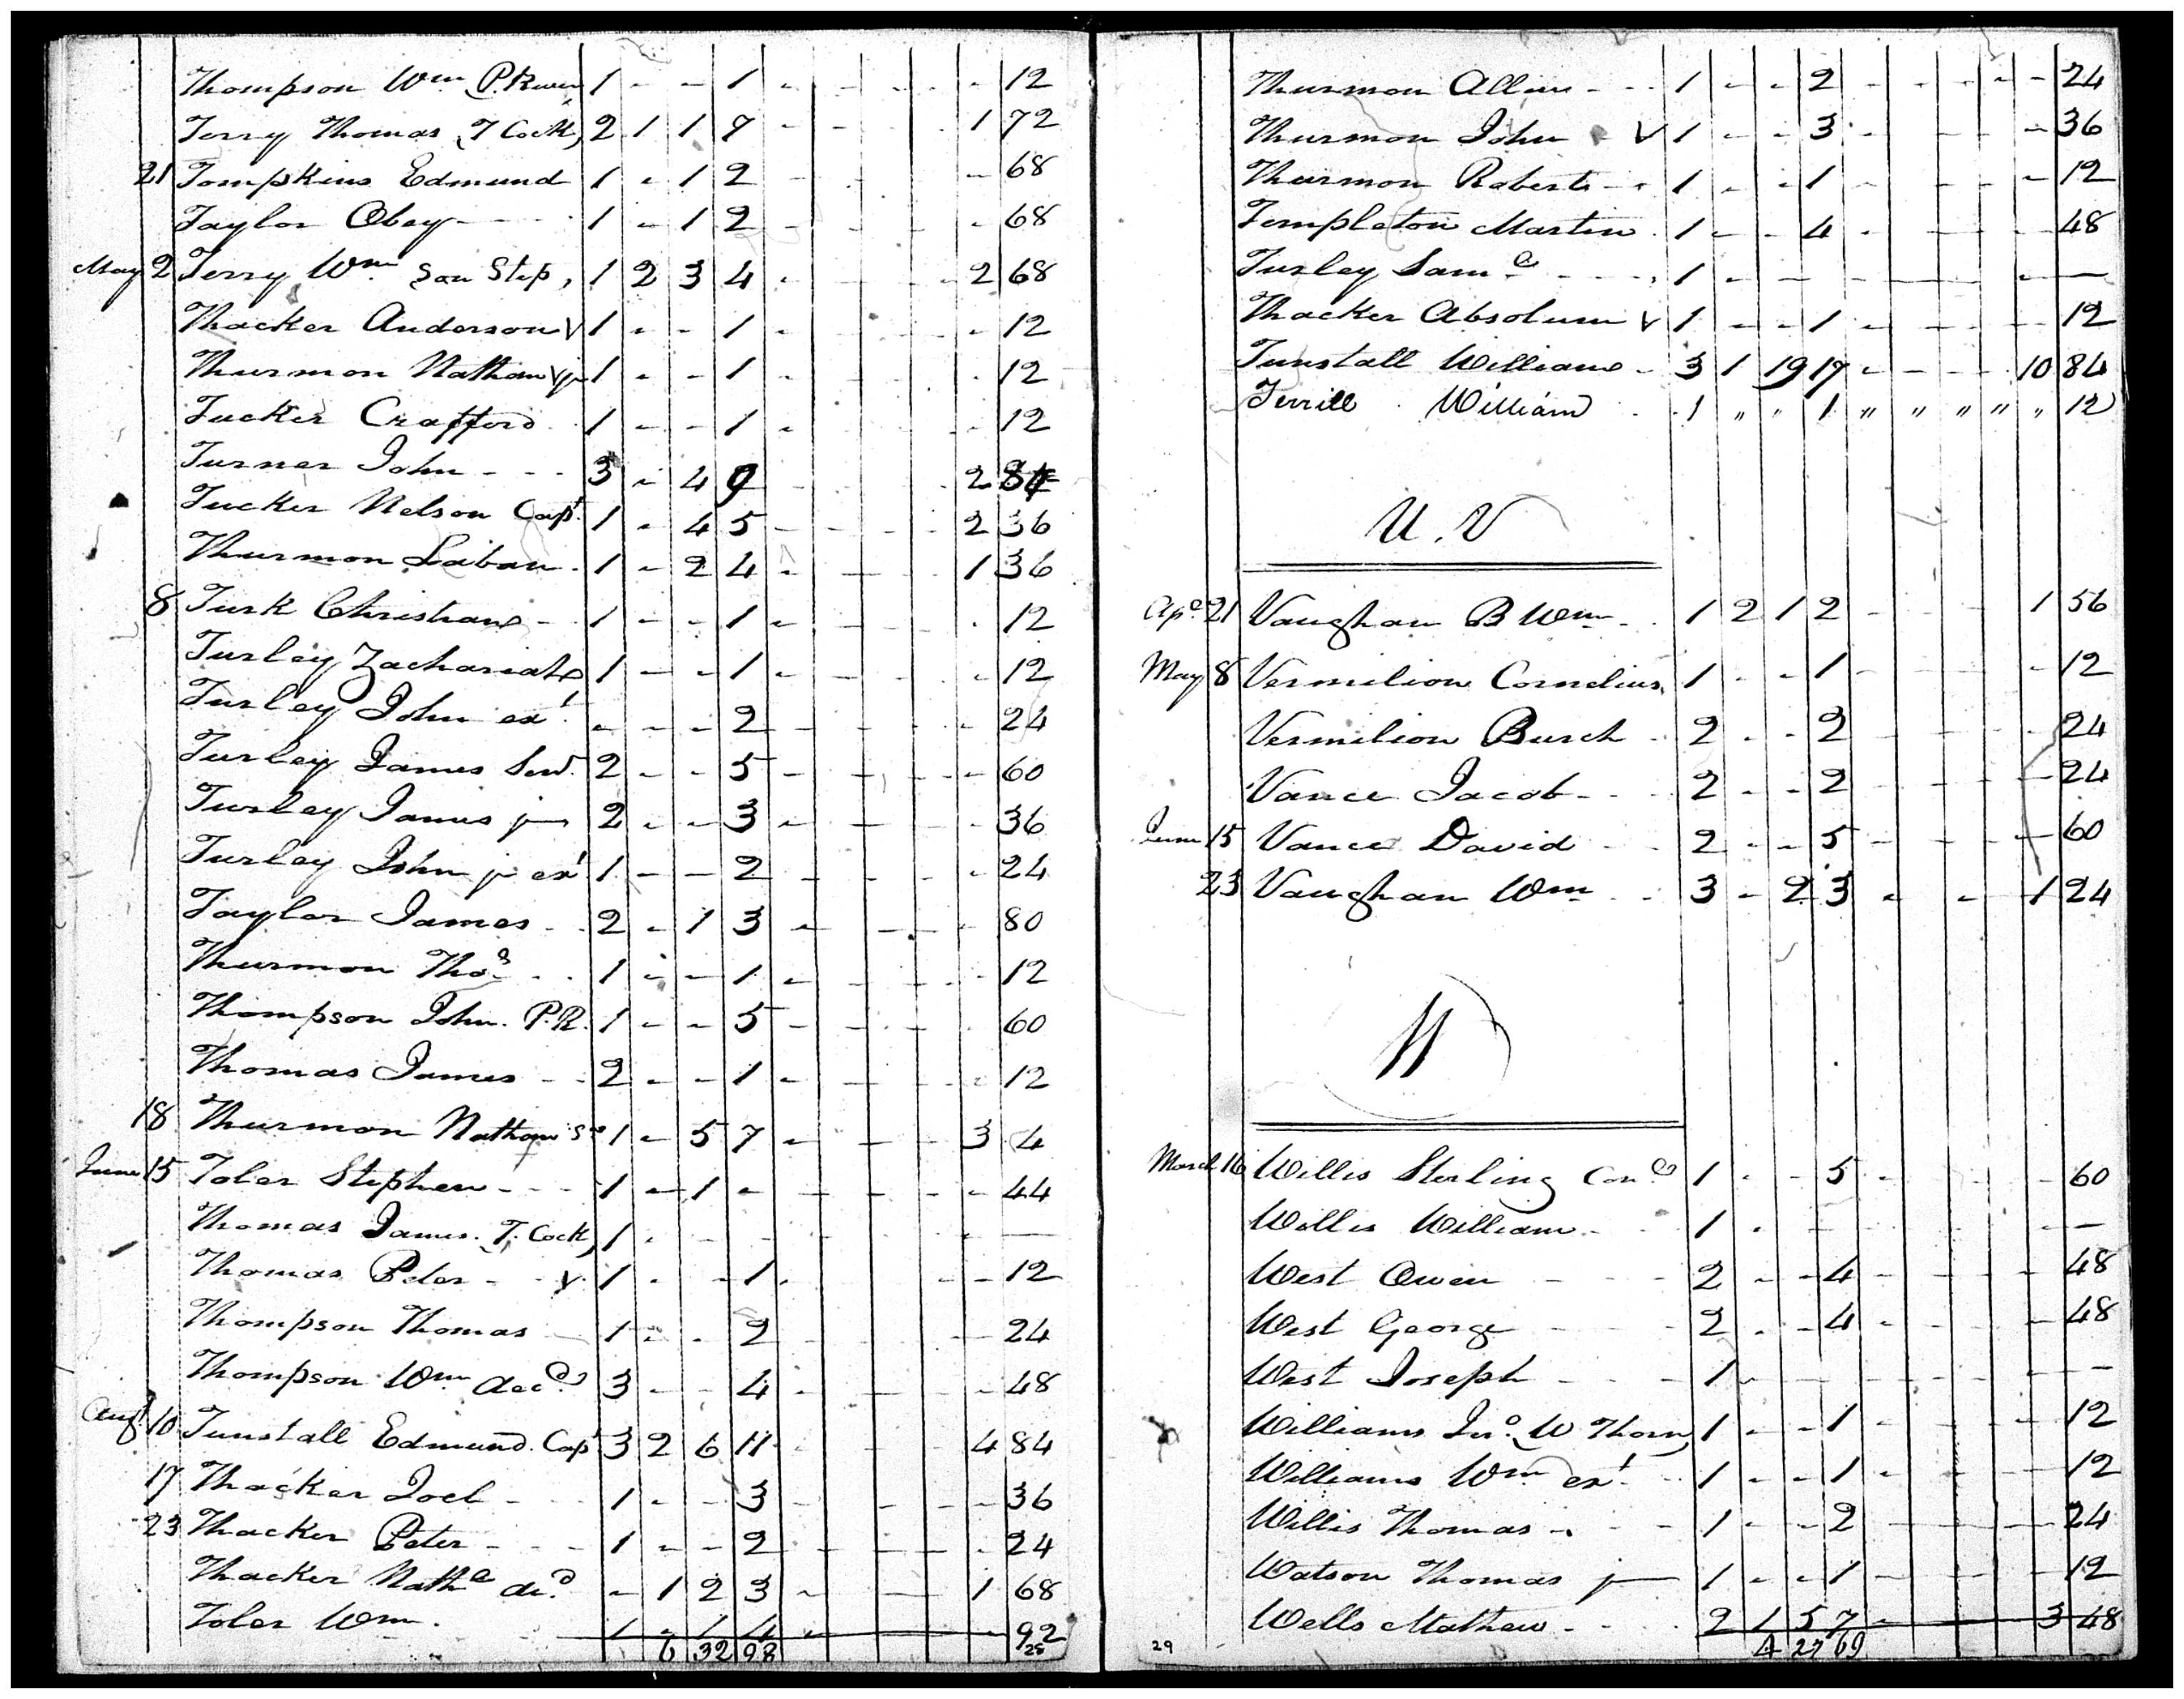 Thompson Wm P. River 1 - - 1 - - - - - 12
Terry Thomas T Cock, 2 1 1 7 - - - - 1 72
21 Tompskins Edmund 1 - 1 2 - - - - - 68
Taylor Obey - - - 1 - 1 2 - - - - - 68
May 2 Terry Wm son Step, 1 2 3 4 - - - - 2 68
Thacker Anderson V 1 - - 1 - - - - - 12
Thurmon Nathan V jr 1 - - 1 - - - - - 12
Tucker Crafford 1 - - 1 - - - - - 12
Turner John - - - 3 - 4 9 - - - - 2 84
Tucker Nelson Capt 1 - 4 5 - - - - 2 36
Thurmon Laban - 1 - 2 4 - - - - 1 36
8 Turk Christian - 1 - - 1 - - - - - 12
Turley Zachariah 1 - - 1 - - - - - 12
Turley John ext - - - 2 - - - - - 24
Turley James Senr. 2 - - 5 - - - - - 60
Turley James jr 2 - - 3 - - - - - 36
Turley John jr ext 1 - - 2 - - - - - 24
Taylor James - - 2 - 1 3 - - - - - 80
Thurmon Thos - - 1 - - 1 - - - - - 12
Thompson John. P.R. 1 - - 5 - - - - - 60
Thomas James - - 2 - - 1 - - - - - 12
18 Thurmon Nathan Sr 1 - 5 7 - - - - 3 4
June 15 Toler Stephen - - - 1 - 1 - - - - - - 44
Thomas James. T. Cock, 1 - - - - - - - - -
Thomas Peter - - V. 1 - - 1 - - - - - 12
Thompson Thomas 1 - - 2 - - - - - 24
Thompson Wm decd 3 - - 4 - - - - - 48
Augt 10 Tunstall Edmund. Capt 3 2 6 11 - - - - 4 84
17 Thacker Joel - 1 - - 3 - - - - - 36
23 Thacker Peter - - - 1 - - 2 - - - - - 24
Thacker Nathl decd. - 1 2 3 - - - - 1 68
Toler Wm. 1 - 1 4 - - - - - 92
6 32 98 28
Thurmon Allen - - - 1 - - 2 - - - - - 24
Thurmon John - V 1 - - 3 - - - - - 36
Thurmon Robert - - 1 - - 1 - - - - - 12
Templeton Martin - 1 - - 4 - - - - - 48
Turley Saml - - - - 1 - - - - - - - - -
Thacker Absolum V 1 - - 1 - - - - - 12
Tunstall William - 3 1 19 17 - - - - 10 84
Terrill William - 1 " " 1 " " " " " 12
U. V
Apl 21 Vaughan B Wm - 1 2 1 2 - - - - 1 56
May 8 Vermilion Cornelius, 1 - - 1 - - - - - 12
Vermilion Burch - 2 - - 2 - - - - - 24
Vance Jacob - - - 2 - - 2 - - - - - 24
June 15 Vance David - - 2 - - 5 - - - - - 60
23 Vaughan Wm - - 3 - 2 3 - - - - 1 24
W
March 16 Willis Sterling Cond 1 - - 5 - - - - - 60
Willis William - 1 - - - - - - - - -
West Owen - - - 2 - - 4 - - - - - 48
West George - - - 2 - - 4 - - - - - 48
West Joseph - - - 1 - - - - - - - - -
Williams Jno. W Thorn, 1 - - 1 - - - - - 12
Williams Wm ext - - 1 - - 1 - - - - - 12
Willis Thomas - - - 1 - - 2 - - - - - 24
Watson Thomas jr 1 - - 1 - - - - - 12
Wells Mathew - - - - 2 1 5 7 - - - - 3 48
29 4 27 69